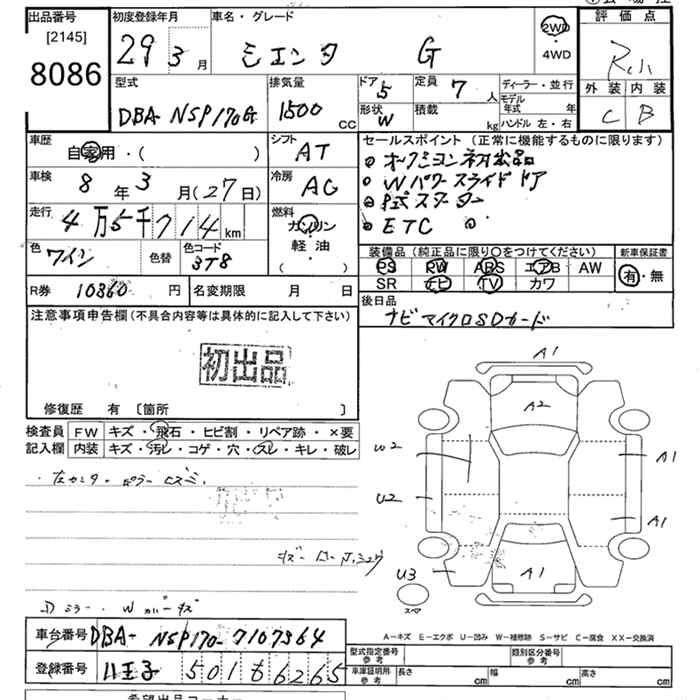 出品番号
[2145]
8086
初度登録年月
29 3月
車名・グレード
シエンタ G
2WD
・
4WD
評価点
外装 内装
C B
型式
DBA-NSP170G
排気量
1500 CC
ドア 5
定員 7 人
形状 W
積載 kg
ディーラー・並行
モデル年式 年
ハンドル 左・右
車歴
自家用・( )
シフト
AT
セールスポイント (正常に機能するものに限ります)
Wパワースライドドア
ETC
車検
8年3月(27日)
冷房
AC
走行
4万5千714km
燃料
ガソリン
軽油
・
( )
色
ワイン
色替
色コード
3T8
装備品 (純正品に限り○をつけてください)
PS PW ABS エアB AW
SR ナビ TV カワ
新車保証書
有・無
R券 10860円
名変期限 月 日
後日品
ナビマイクロSDカード
注意事項申告欄 (不具合内容等は具体的に記入して下さい)
初出品
修復歴 有 [箇所 ]
検査員記入欄
FW キズ・飛石・ヒビ割・リペア跡・×要
内装 キズ・汚レ・コゲ・穴・スレ・キレ・破レ
A1
A2
W2
A1
U2
A1
U3
A1
スペア
A-キズ E-エクボ U-凹み W-補修跡 S-サビ C-腐食 XX-交換済
車台番号 DBA-NSP170-7107364
登録番号 八王子 501 も 6265
型式指定番号 参考
類別区分番号 参考
車庫証明用 参考
長さ 幅 高さ
cm cm cm
希望出品コーナー